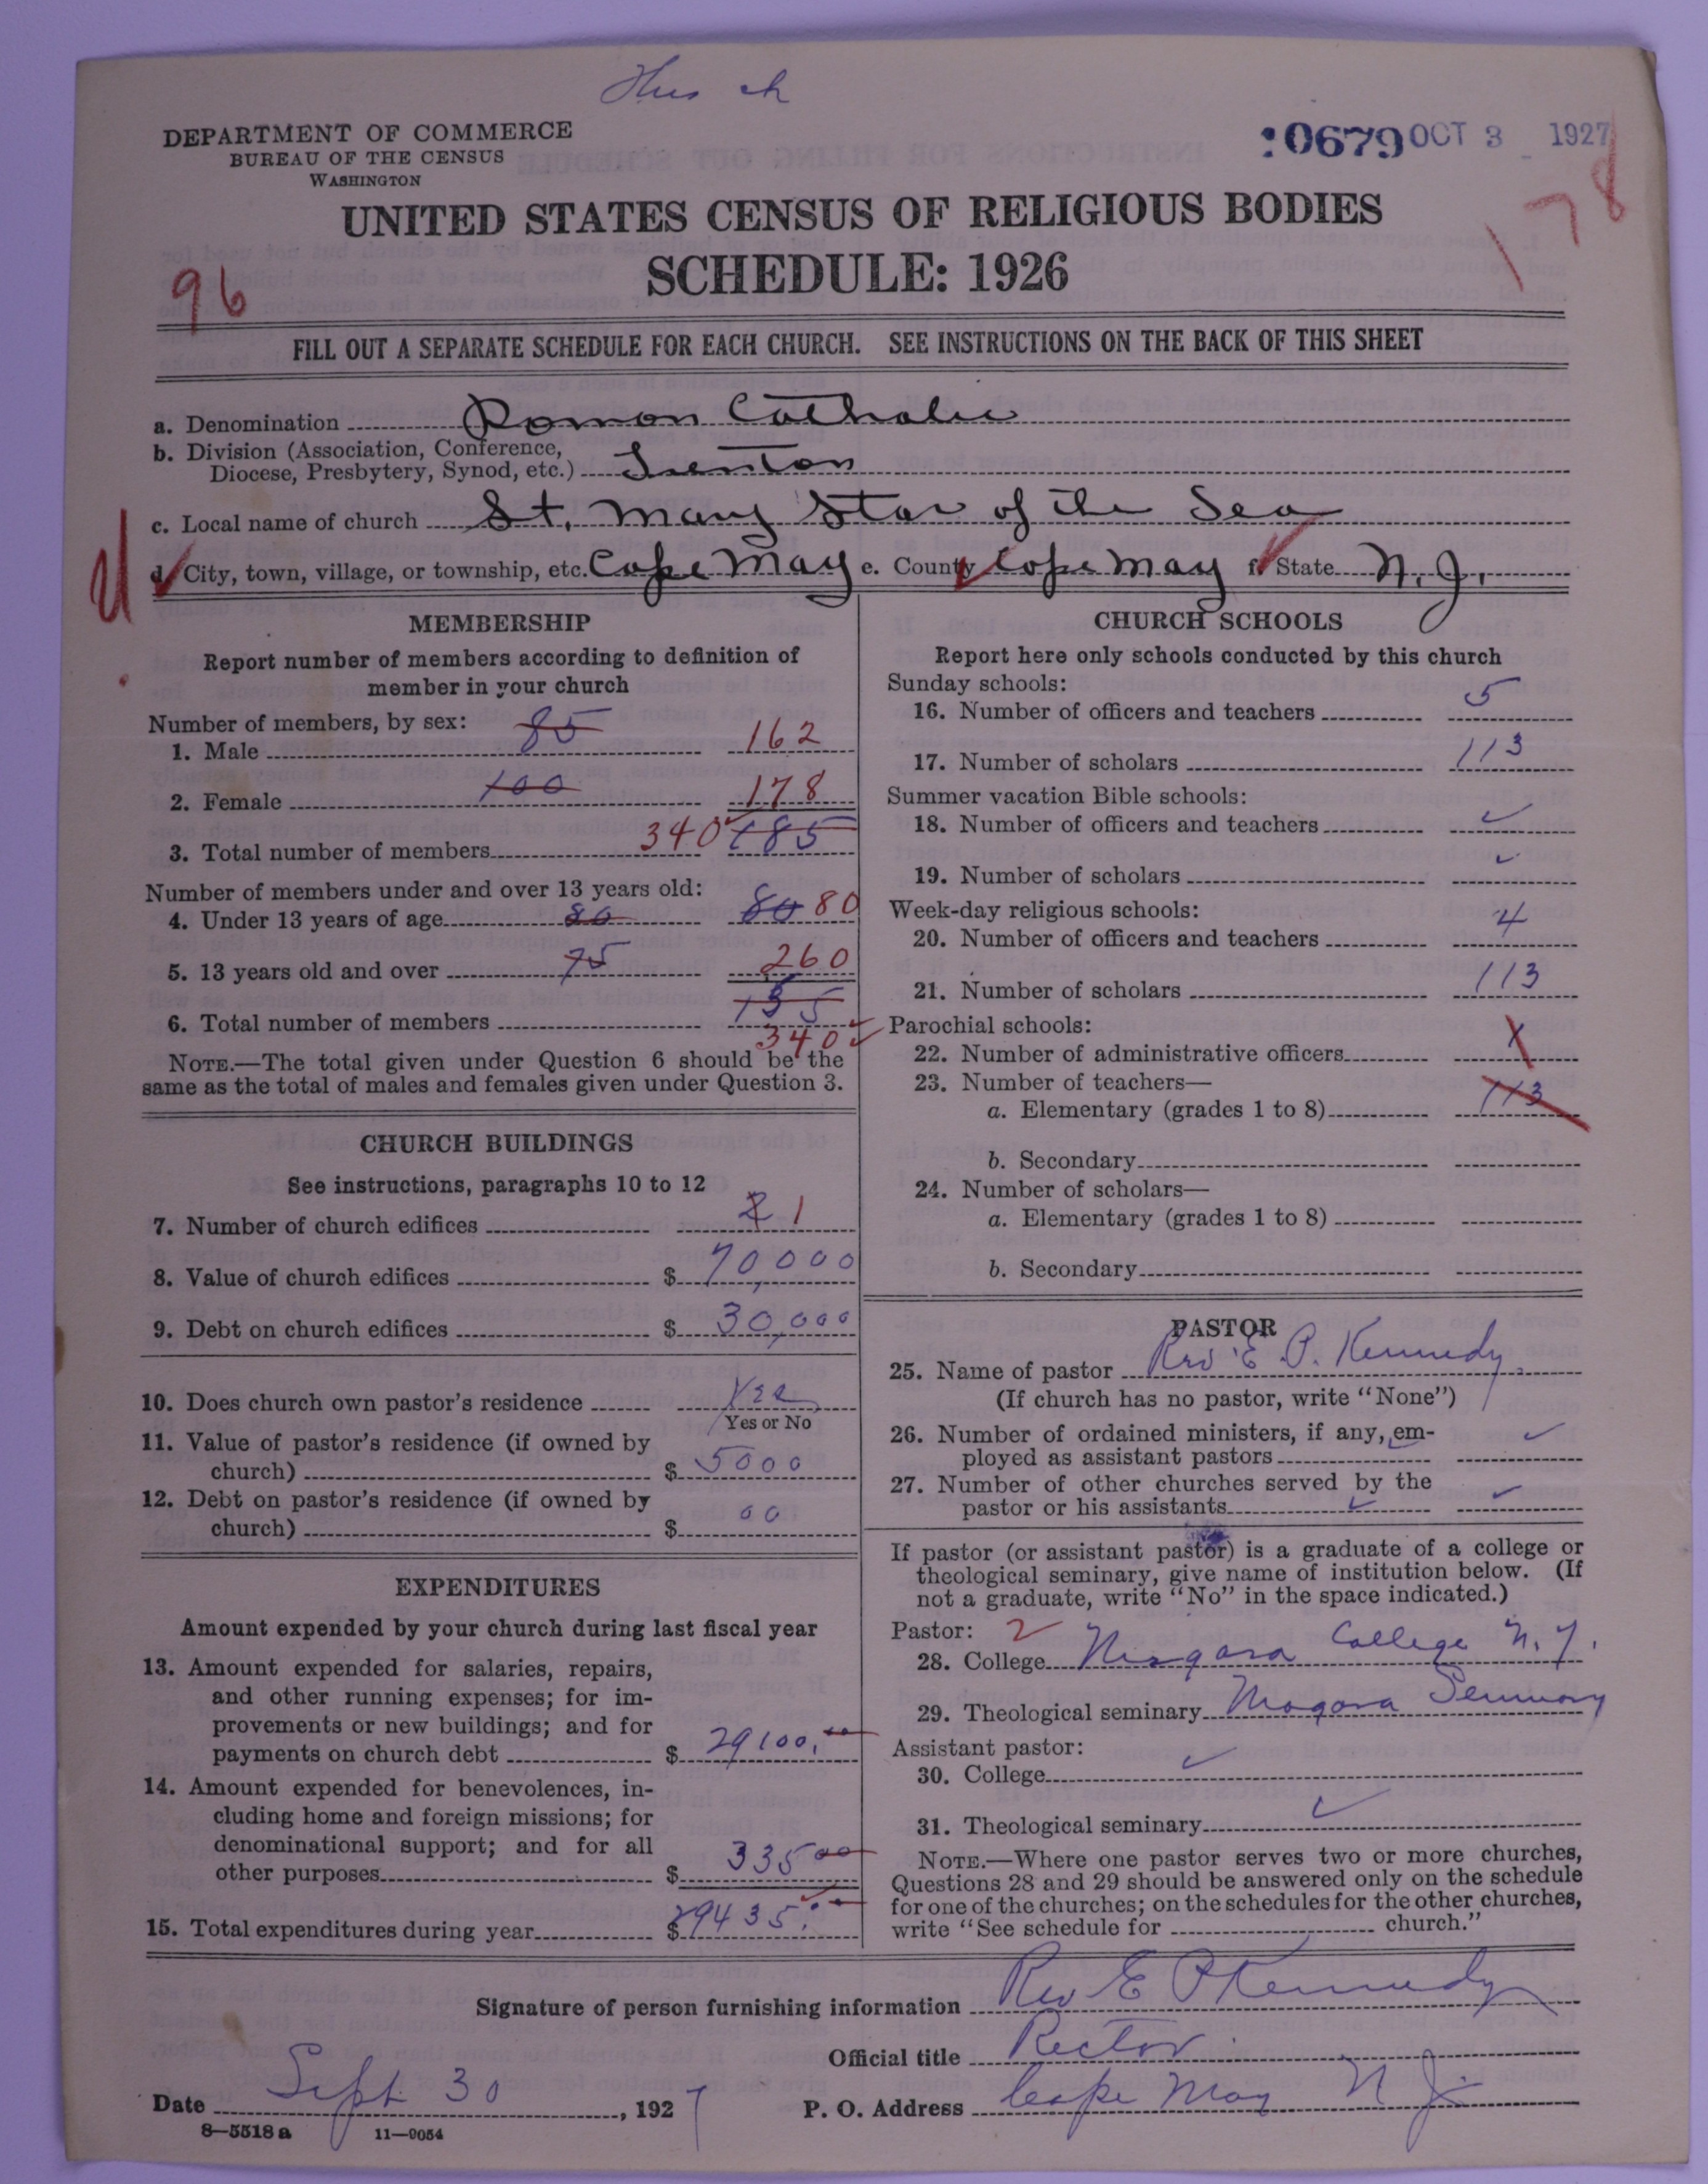 DEPARTMENT OF COMMERCE
BUREAU OF THE CENSUS
WASHINGTON
10679 OCT 3 1927
178
UNITED STATES CENSUS OF RELIGIOUS BODIES
SCHEDULE: 1926
96
FILL OUT A SEPARATE SCHEDULE FOR EACH CHURCH. SEE INSTRUCTIONS ON THE BACK OF THIS SHEET
a. Denomination Roman Catholic
b. Division (Association, Conference,
Diocese, Presbytery, Synod, etc.) Trenton
c. Local name of church St. Mary Star of the Sea
d. City, town, village, or township, etc. Cape May e. County Cape May f. State N.J.
MEMBERSHIP
Report number of members according to definition of
member in your church
Number of members, by sex:
1. Male 85 162
2. Female 100 178
3. Total number of members 340 185
Number of members under and over 13 years old:
4. Under 13 years of age 80 80 80
5. 13 years old and over 75 260
6. Total number of members 155
340
NOTE.—The total given under Question 6 should be the
same as the total of males and females given under Question 3.
CHURCH BUILDINGS
See instructions, paragraphs 10 to 12
7. Number of church edifices 2 1
8. Value of church edifices $ 70,000
9. Debt on church edifices $ 30,000
10. Does church own pastor's residence Yes
Yes or No
11. Value of pastor's residence (if owned by
church) $ 5000
12. Debt on pastor's residence (if owned by
church) $ 00
EXPENDITURES
Amount expended by your church during last fiscal year
13. Amount expended for salaries, repairs,
and other running expenses; for im-
provements or new buildings; and for
payments on church debt $ 29100.00
14. Amount expended for benevolences, in-
cluding home and foreign missions; for
denominational support; and for all
other purposes $ 335 00
15. Total expenditures during year $ 29435.
CHURCH SCHOOLS
Report here only schools conducted by this church
Sunday schools:
16. Number of officers and teachers 5
17. Number of scholars 113
Summer vacation Bible schools:
18. Number of officers and teachers ✓
19. Number of scholars ✓
Week-day religious schools:
20. Number of officers and teachers 4
21. Number of scholars 113
Parochial schools:
22. Number of administrative officers X
23. Number of teachers—
a. Elementary (grades 1 to 8) 113
b. Secondary
24. Number of scholars—
a. Elementary (grades 1 to 8)
b. Secondary
PASTOR
25. Name of pastor Rev E. P. Kennedy
(If church has no pastor, write "None")
26. Number of ordained ministers, if any, em-
ployed as assistant pastors ✓
27. Number of other churches served by the
pastor or his assistants ✓ ✓
If pastor (or assistant pastor) is a graduate of a college or
theological seminary, give name of institution below. (If
not a graduate, write "No" in the space indicated.)
Pastor: 2
28. College Niagara College N.Y.
29. Theological seminary Niagara Seminary
Assistant pastor:
30. College ✓
31. Theological seminary ✓
NOTE.—Where one pastor serves two or more churches,
Questions 28 and 29 should be answered only on the schedule
for one of the churches; on the schedules for the other churches,
write "See schedule for church."
Signature of person furnishing information Rev E P Kennedy
Official title Rector
Date Sept 30, 1927
P. O. Address Cape May N J.
8—5518 a 11—9054